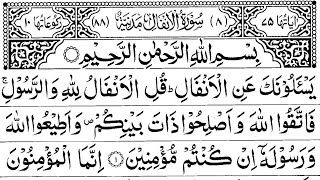 اٰيَاتُهَا ٧٥ (٨) سُوْرَةُ الْاَنْفَالِ مَدَنِيَّةٌ (٨٨) رُكُوْعَاتُهَا ١٠
بِسْمِ اللّٰهِ الرَّحْمٰنِ الرَّحِيْمِ
يَسْـَٔلُوْنَكَ عَنِ الْاَنْفَالِ ؕ قُلِ الْاَنْفَالُ لِلّٰهِ وَالرَّسُوْلِ ۚ
فَاتَّقُوا اللّٰهَ وَاَصْلِحُوْا ذَاتَ بَيْنِكُمْ ۪ وَاَطِيْعُوا اللّٰهَ
وَرَسُوْلَهٗۤ اِنْ كُنْتُمْ مُّؤْمِنِيْنَ ۝۱ اِنَّمَا الْمُؤْمِنُوْنَ